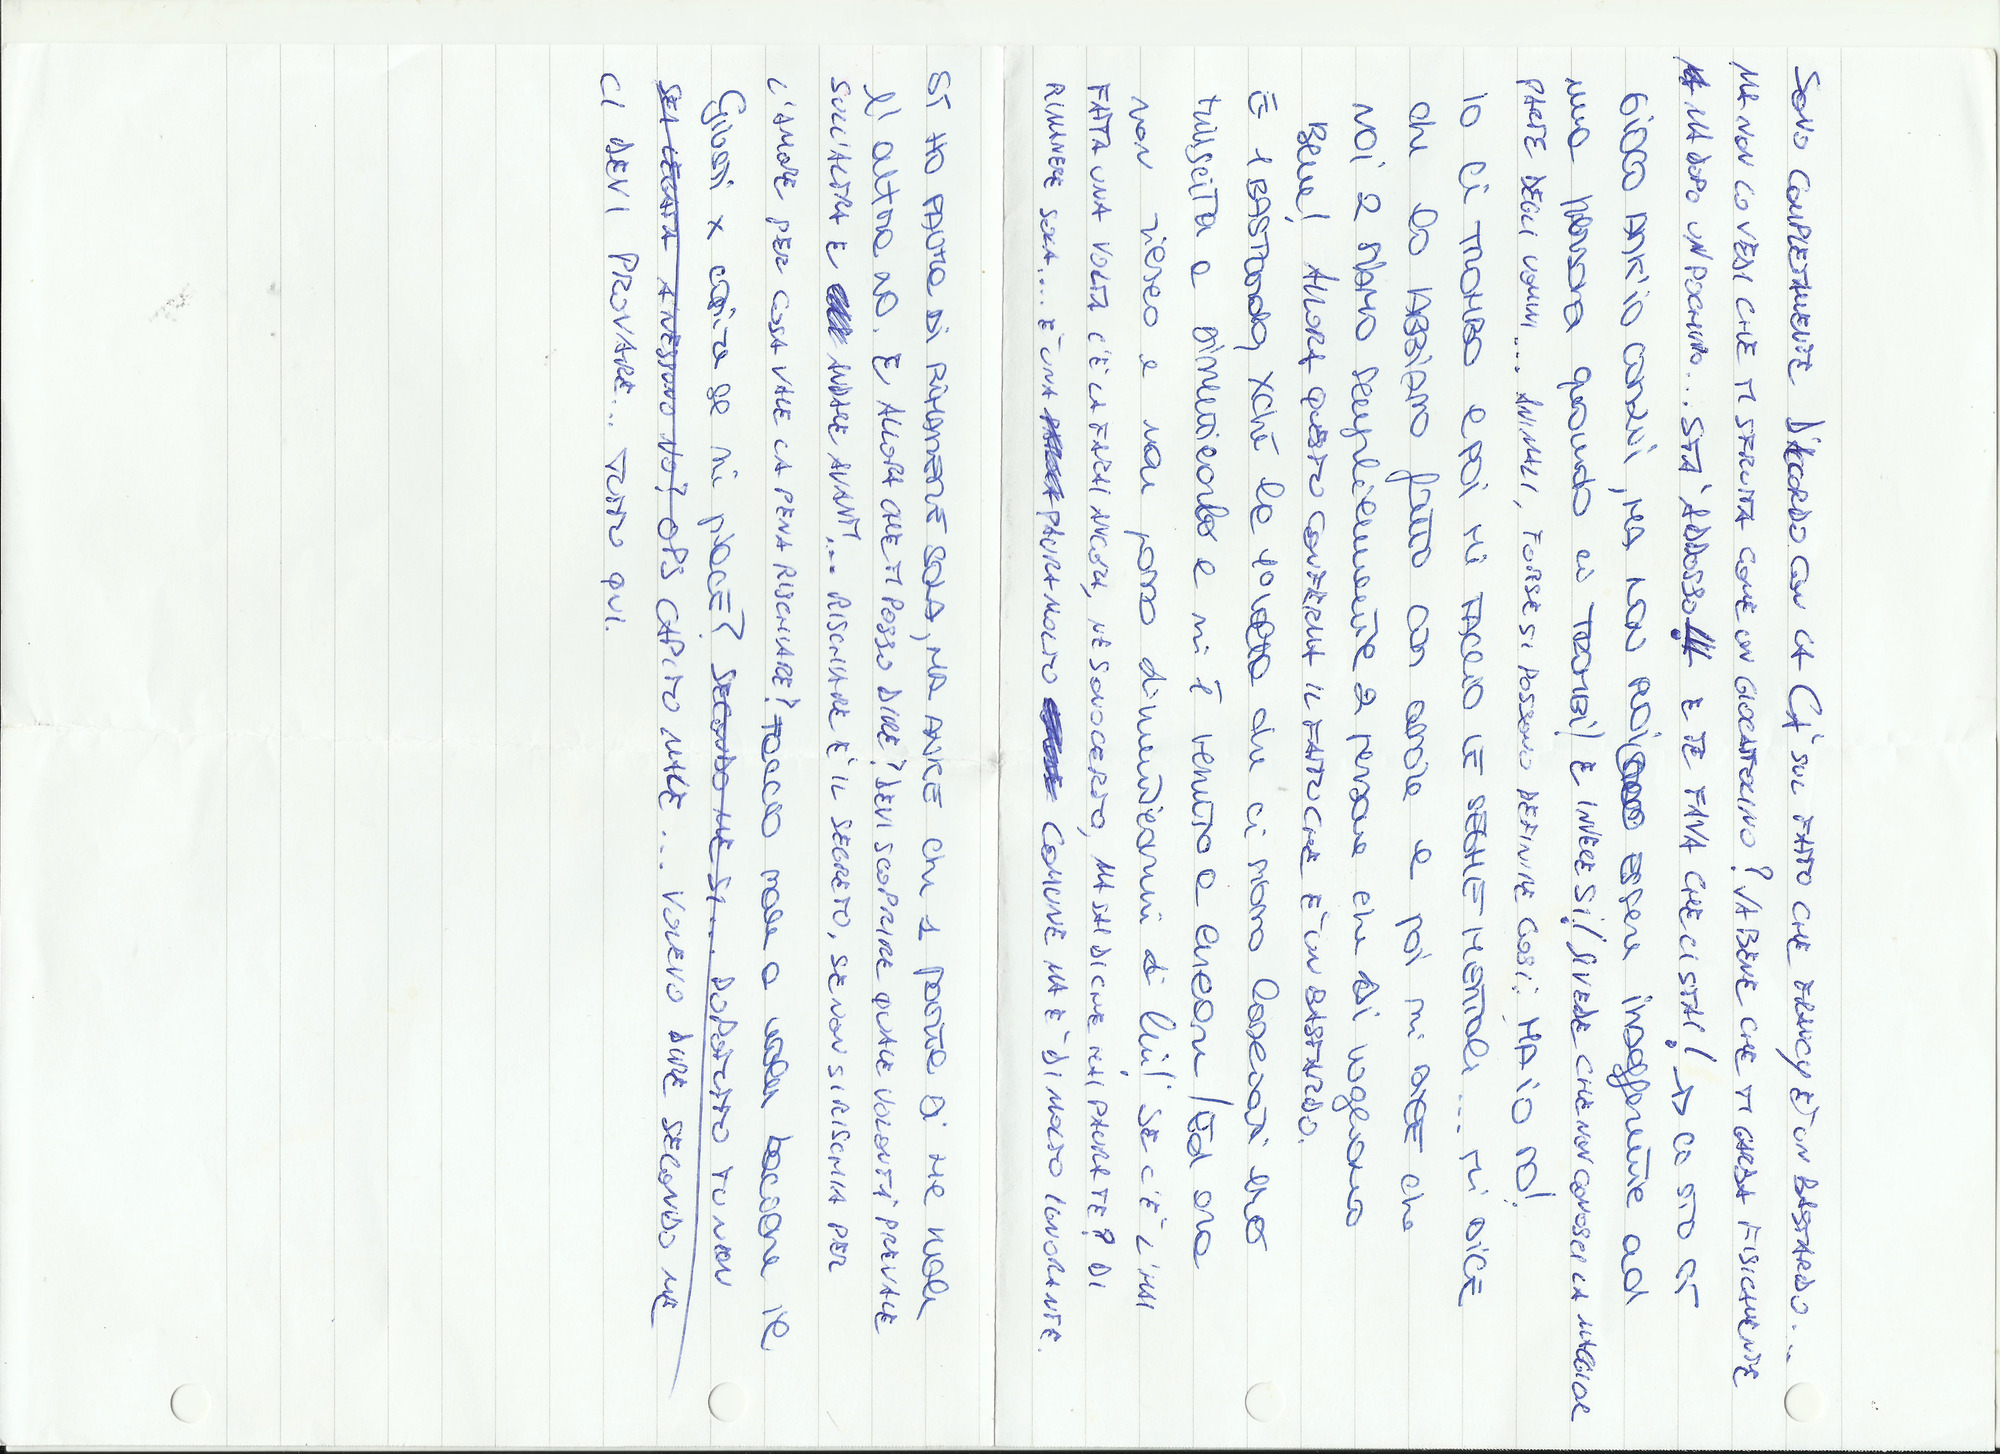 SONO COMPLETAMENTE D'ACCORDO CON LA CA' SUL FATTO CHE FRANCY E' UN BASTARDO...
MA NON LO VEDI CHE TI SFRUTTA COME UN GIOCATTOLINO? VA BENE CHE TI GARBA FISICAMENTE
MA DOPO UN POCHINO... STA' ADDOSSO!! E TE FAVA CHE CI STAI! → CO STO CI
GIOCO ANK'IO COMINI, MA NON PUOI ESSERE INDIFFERENTE AD
una persona quando ci TROMBI! E INVECE SI! SI VEDE CHE NON CONOSCI LA MAGGIOR
PARTE DEGLI UOMINI... ANIMALI, FORSE SI POSSONO DEFINIRE COSI'; MA IO NO!
IO CI TROMBO E POI MI FACCIO LE SEGHE MENTALI... MI DICE
che lo ABBIAMO fatto con amore e poi mi DICE che
noi 2 SIAMO semplicemente 2 persone che SI vogliono
Bene! ALLORA QUESTO CONFERMA IL FATTO CHE E' UN BASTARDO.
E' 1 BASTARDO, xchè le volte che ci siamo lasciati ero
riuscita a dimenticarlo e mi è venuto a cercare / ED ora
non riesco e non posso dimenticarmi di lui! SE C'E' L'HAI
FATTA UNA VOLTA C'E' LA FARAI ANCORA, NE SONO CERTO, MA SAI DI CHE HAI PAURA TE? DI
RIMANERE SOLA... E' UNA PAURA MOLTO COMUNE MA E' DI MOLTO IGNORANTE.
SI HO PAURA DI RIMANERE SOLA, MA ANKE CHE 1 parte DI ME vuole
l'altra no. E ALLORA CHE TI POSSO DIRE? DEVI SCOPRIRE QUALE VOLONTA' PREVALE
SULL'ALTRA E ANDARE AVANTI... RISCHIARE E' IL SEGRETO, SE NON SI RISCHIA PER
L'AMORE PER COSA VALE LA PENA RISCHIARE? TOCCO male a voler baciare il
Giusti x capire se mi piace? SECONDO ME SI... DOPOTUTTO TU NON
SEI LEGATA A NESSUNO NO? OPS CAPITO MALE... VOLEVO DIRE SECONDO ME
CI DEVI PROVARE... TUTTO QUI.